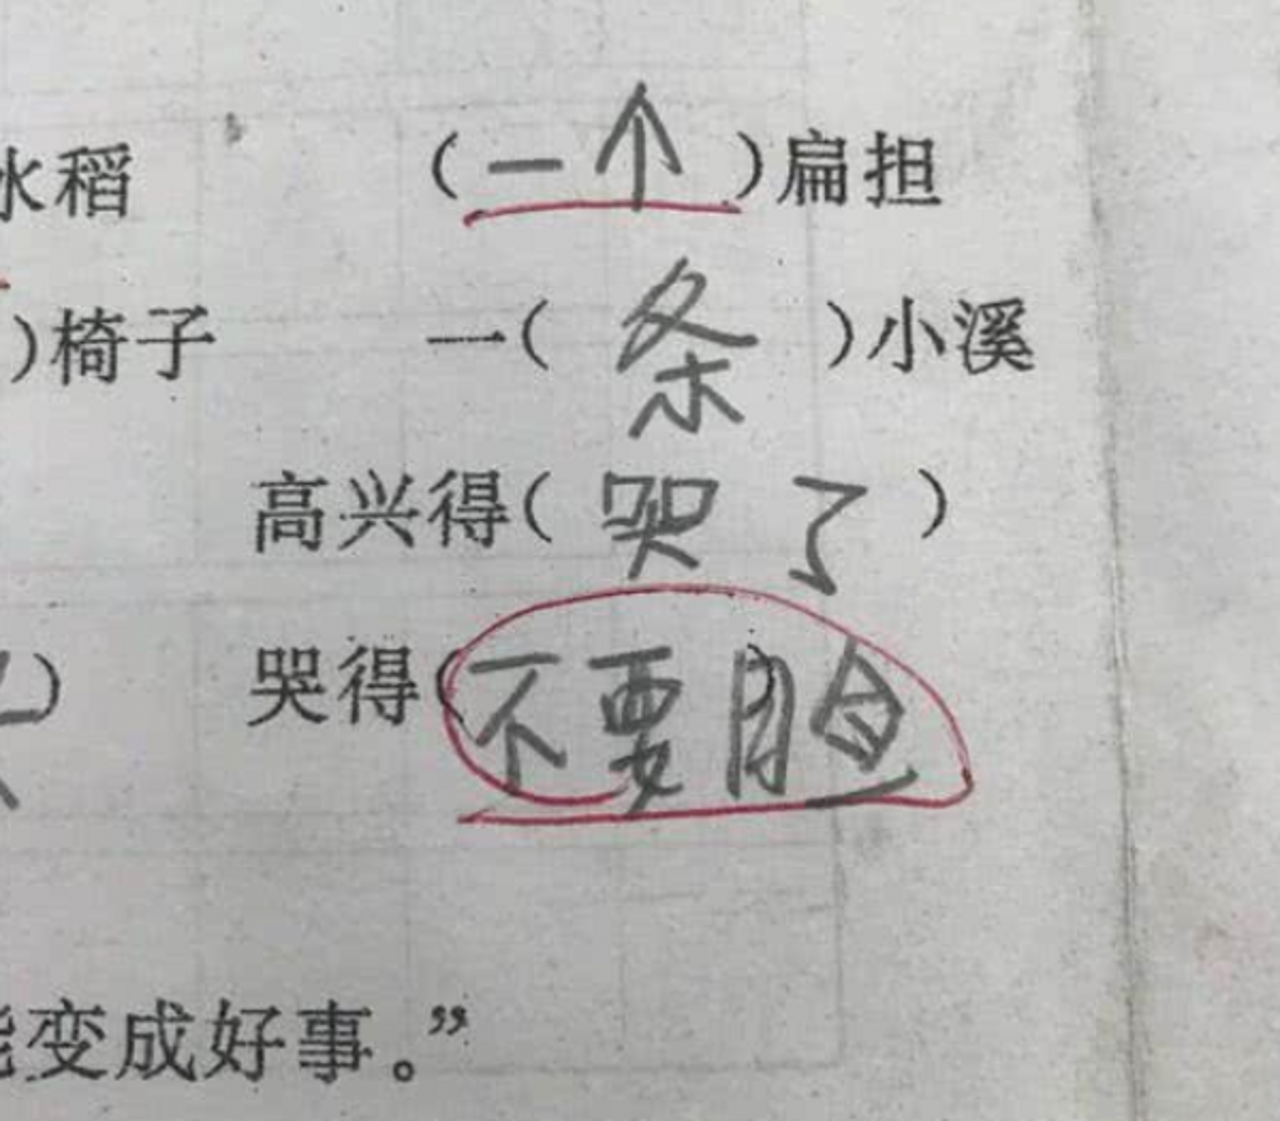 水稻 (一个)扁担
)椅子 一(条)小溪
高兴得(哭了)
) 哭得(不要胆
能变成好事。”